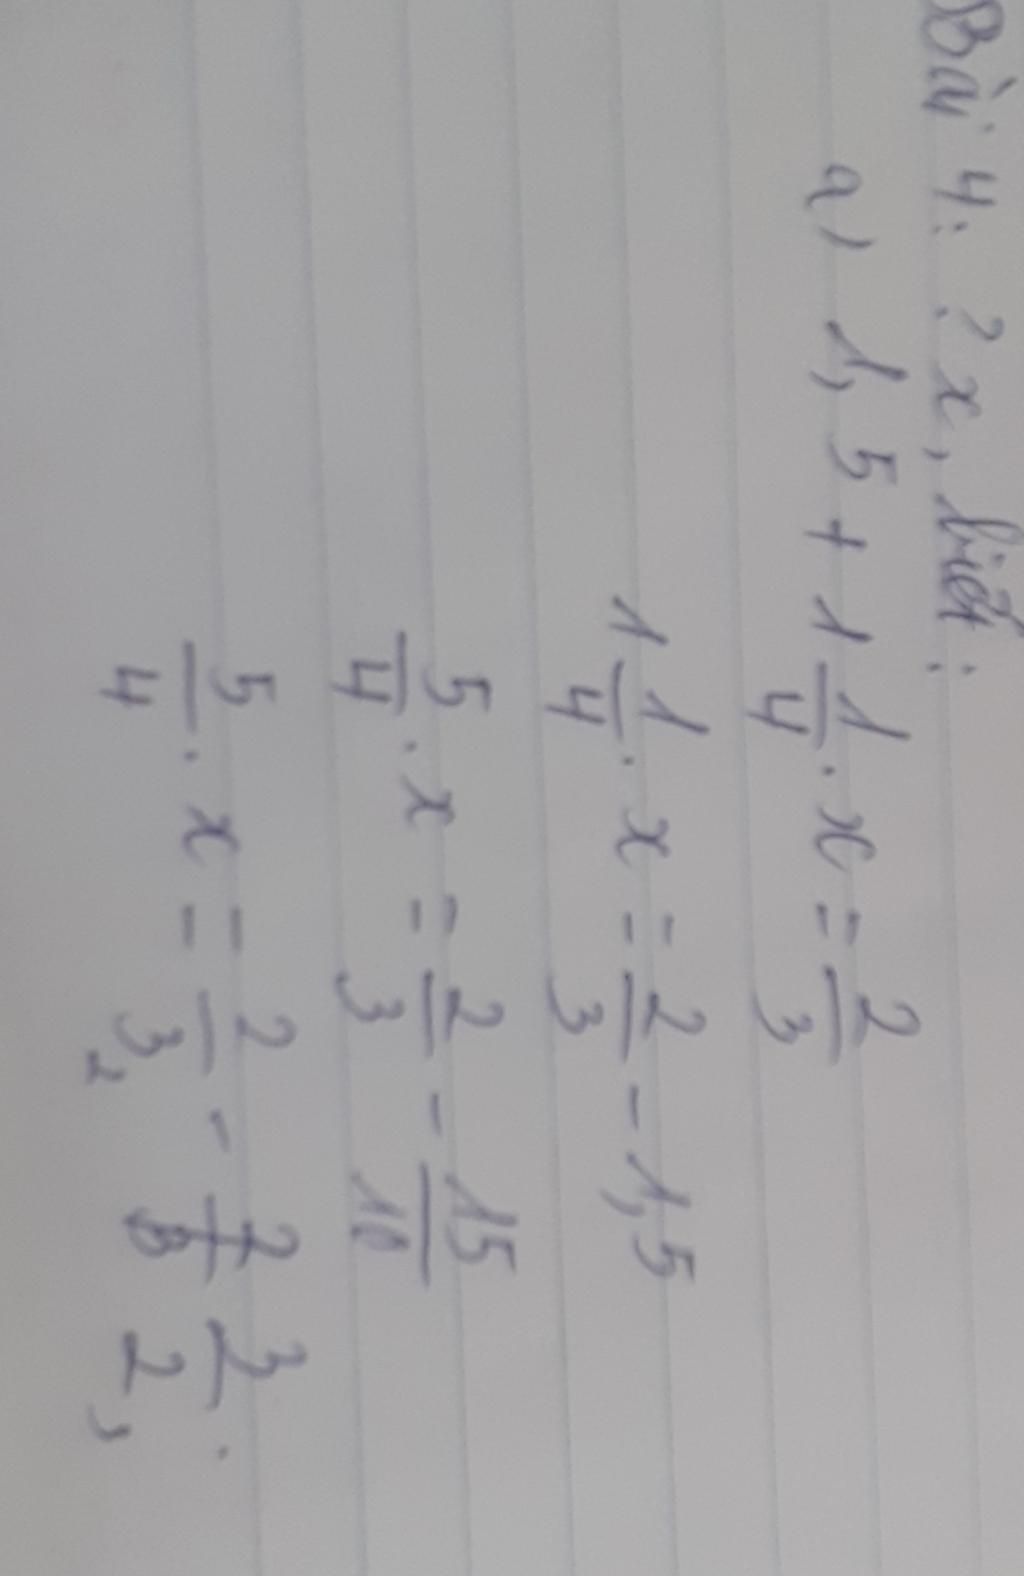 Bài 4: ? x, biết:
a) 1,5 + 1 1/4 . x = 2/3
1 1/4 . x = 2/3 - 1,5
5/4 . x = 2/3 - 15/10
5/4 . x = 2/3 - 3/2